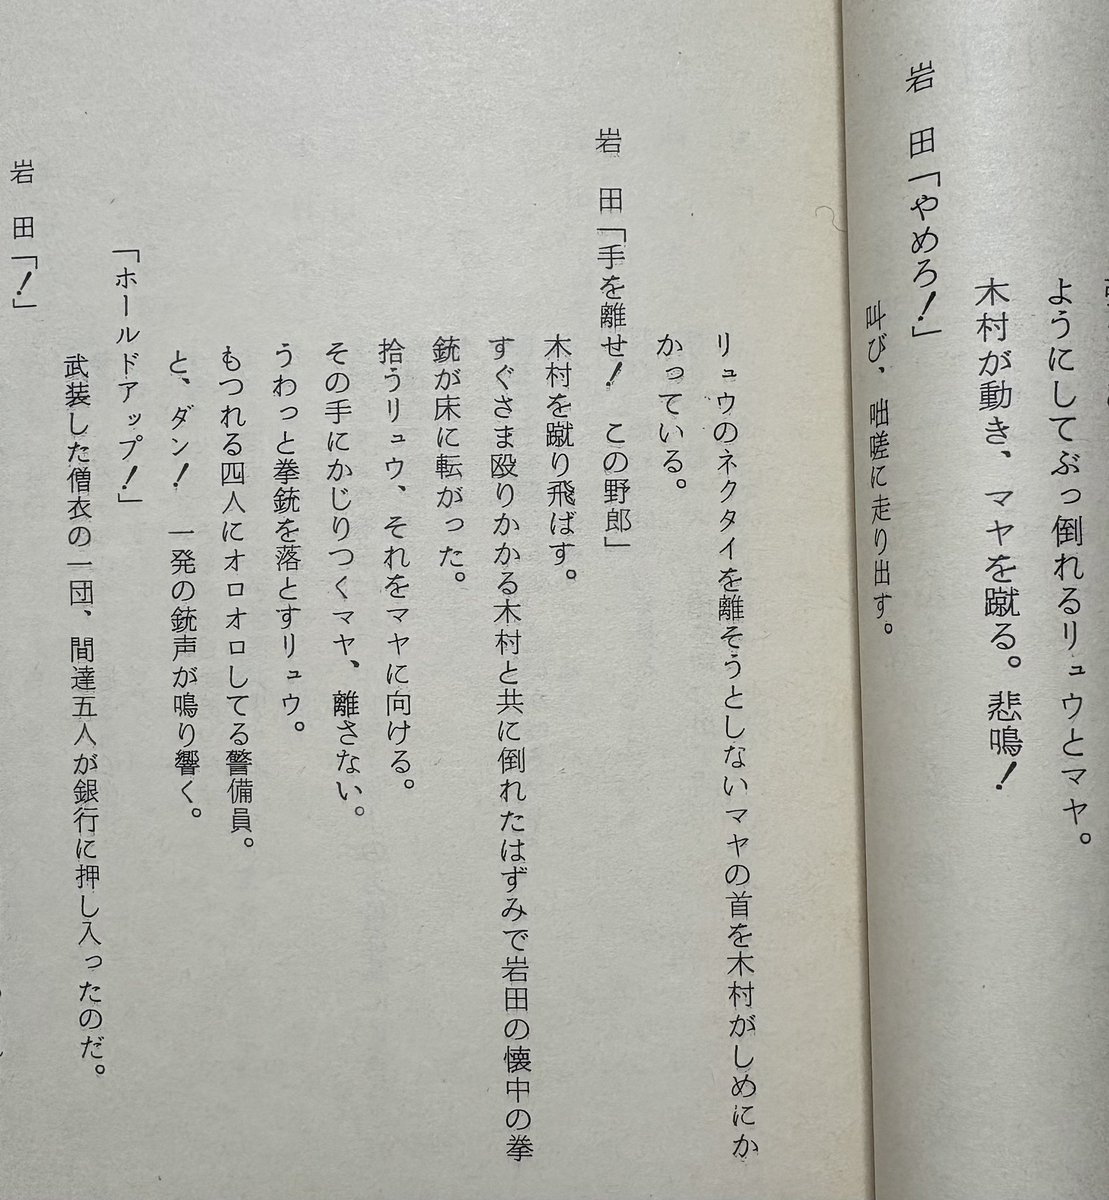 ようにしてぶっ倒れるリュウとマヤ。
木村が動き、マヤを蹴る。悲鳴！
岩　田「やめろ！」
叫び、咄嗟に走り出す。
リュウのネクタイを離そうとしないマヤの首を木村がしめにか
かっている。
岩　田「手を離せ！　この野郎」
木村を蹴り飛ばす。
すぐさま殴りかかる木村と共に倒れたはずみで岩田の懐中の拳
銃が床に転がった。
拾うリュウ、それをマヤに向ける。
その手にかじりつくマヤ、離さない。
うわっと拳銃を落とすリュウ。
もつれる四人にオロオロしてる警備員。
と、ダン！　一発の銃声が鳴り響く。
「ホールドアップ！」
武装した僧衣の一団、間達五人が銀行に押し入ったのだ。
岩　田「！」